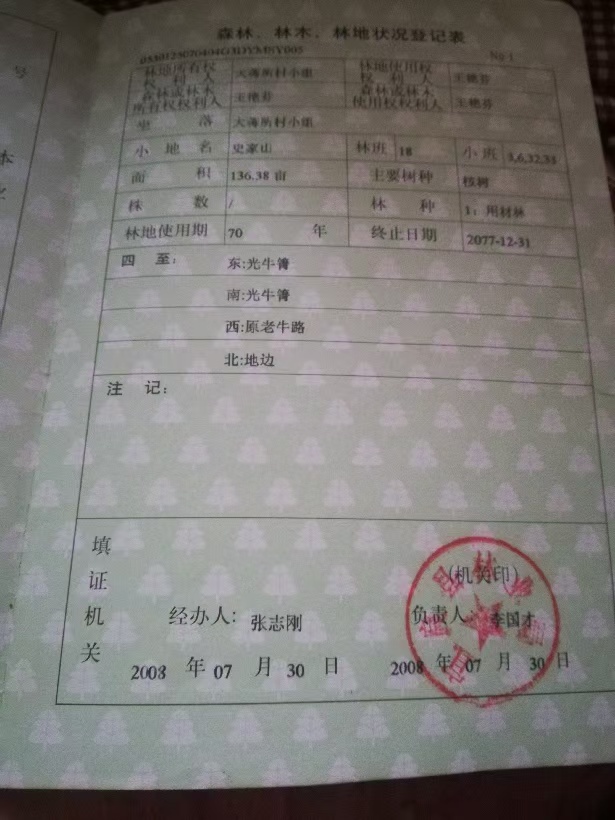 森林、林木、林地状况登记表
№ 1
林地所有权权利人 大薄所村小组 林地使用权权利人 王艳芬
森林或林木所有权权利人 王艳芬 森林或林木使用权权利人 王艳芬
坐落 大薄所村小组
小地名 史家山 林班 18 小班 3,6,32,33
面积 136.38 亩 主要树种 桉树
株数 / 林种 1：用材林
林地使用期 70 年 终止日期 2077-12-31
四至： 东:光牛箐
南:光牛箐
西:原老牛路
北:地边
注记：
填证机关
(机关印)
经办人: 张志刚 负责人 李国才
2008 年 07 月 30 日 2008 年 07 月 30 日